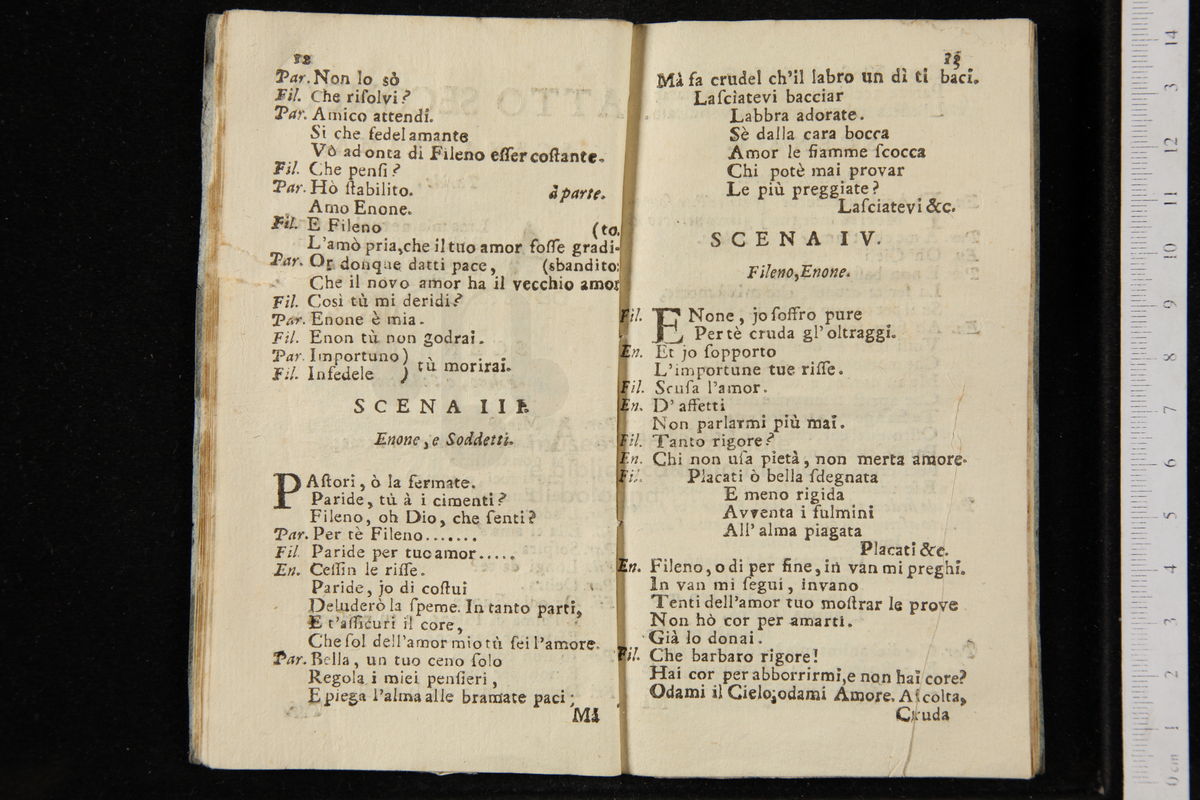 12
Par. Non lo sò
Fil. Che riſolvi?
Par. Amico attendi.
Si che fedel amante
Vò ad onta di Fileno eſſer coſtante.
Fil. Che penſi?
Par. Hò ſtabilito. à parte.
Amo Enone.
Fil. E Fileno (to.
L'amò pria, che il tuo amor foſſe gradi-
Par. Or donque datti pace, (sbandito:
Che il novo amor ha il vecchio amor
Fil. Così tù mi deridi?
Par. Enone è mia.
Fil. Enon tù non godrai.
Par. Importuno ) tù morirai.
Fil. Infedele )
SCENA III.
Enone, e Soddetti.
PAſtori, ò la fermate.
Paride, tù à i cimenti?
Fileno, oh Dio, che ſenti?
Par. Per tè Fileno.......
Fil. Paride per tuo amor.....
En. Ceſſin le riſſe.
Paride, jo di coſtui
Deluderò la ſpeme. In tanto parti,
E t'aſſicuri il core,
Che ſol dell'amor mio tù ſei l'amore.
Par. Bella, un tuo ceno ſolo
Regola i miei penſieri,
E piega l'alma alle bramate paci;
Mà
13
Mà fa crudel ch'il labro un dì ti baci.
Laſciatevi bacciar
Labbra adorate.
Sè dalla cara bocca
Amor le fiamme ſcocca
Chi potè mai provar
Le più preggiate?
Laſciatevi &c.
SCENA IV.
Fileno, Enone.
Fil. ENone, jo ſoffro pure
Per tè cruda gl'oltraggi.
En. Et jo ſopporto
L'importune tue riſſe.
Fil. Scuſa l'amor.
En. D' affetti
Non parlarmi più mai.
Fil. Tanto rigore?
En. Chi non uſa pietà, non merta amore.
Fil. Placati ò bella ſdegnata
E meno rigida
Avventa i fulmini
All' alma piagata
Placati &c.
En. Fileno, o di per fine, in van mi preghi.
In van mi ſegui, invano
Tenti dell'amor tuo moſtrar le prove
Non hò cor per amarti.
Già lo donai.
Fil. Che barbaro rigore!
Hai cor per abborrirmi, e non hai core?
Odami il Cielo, odami Amore. Aſcolta,
Cruda